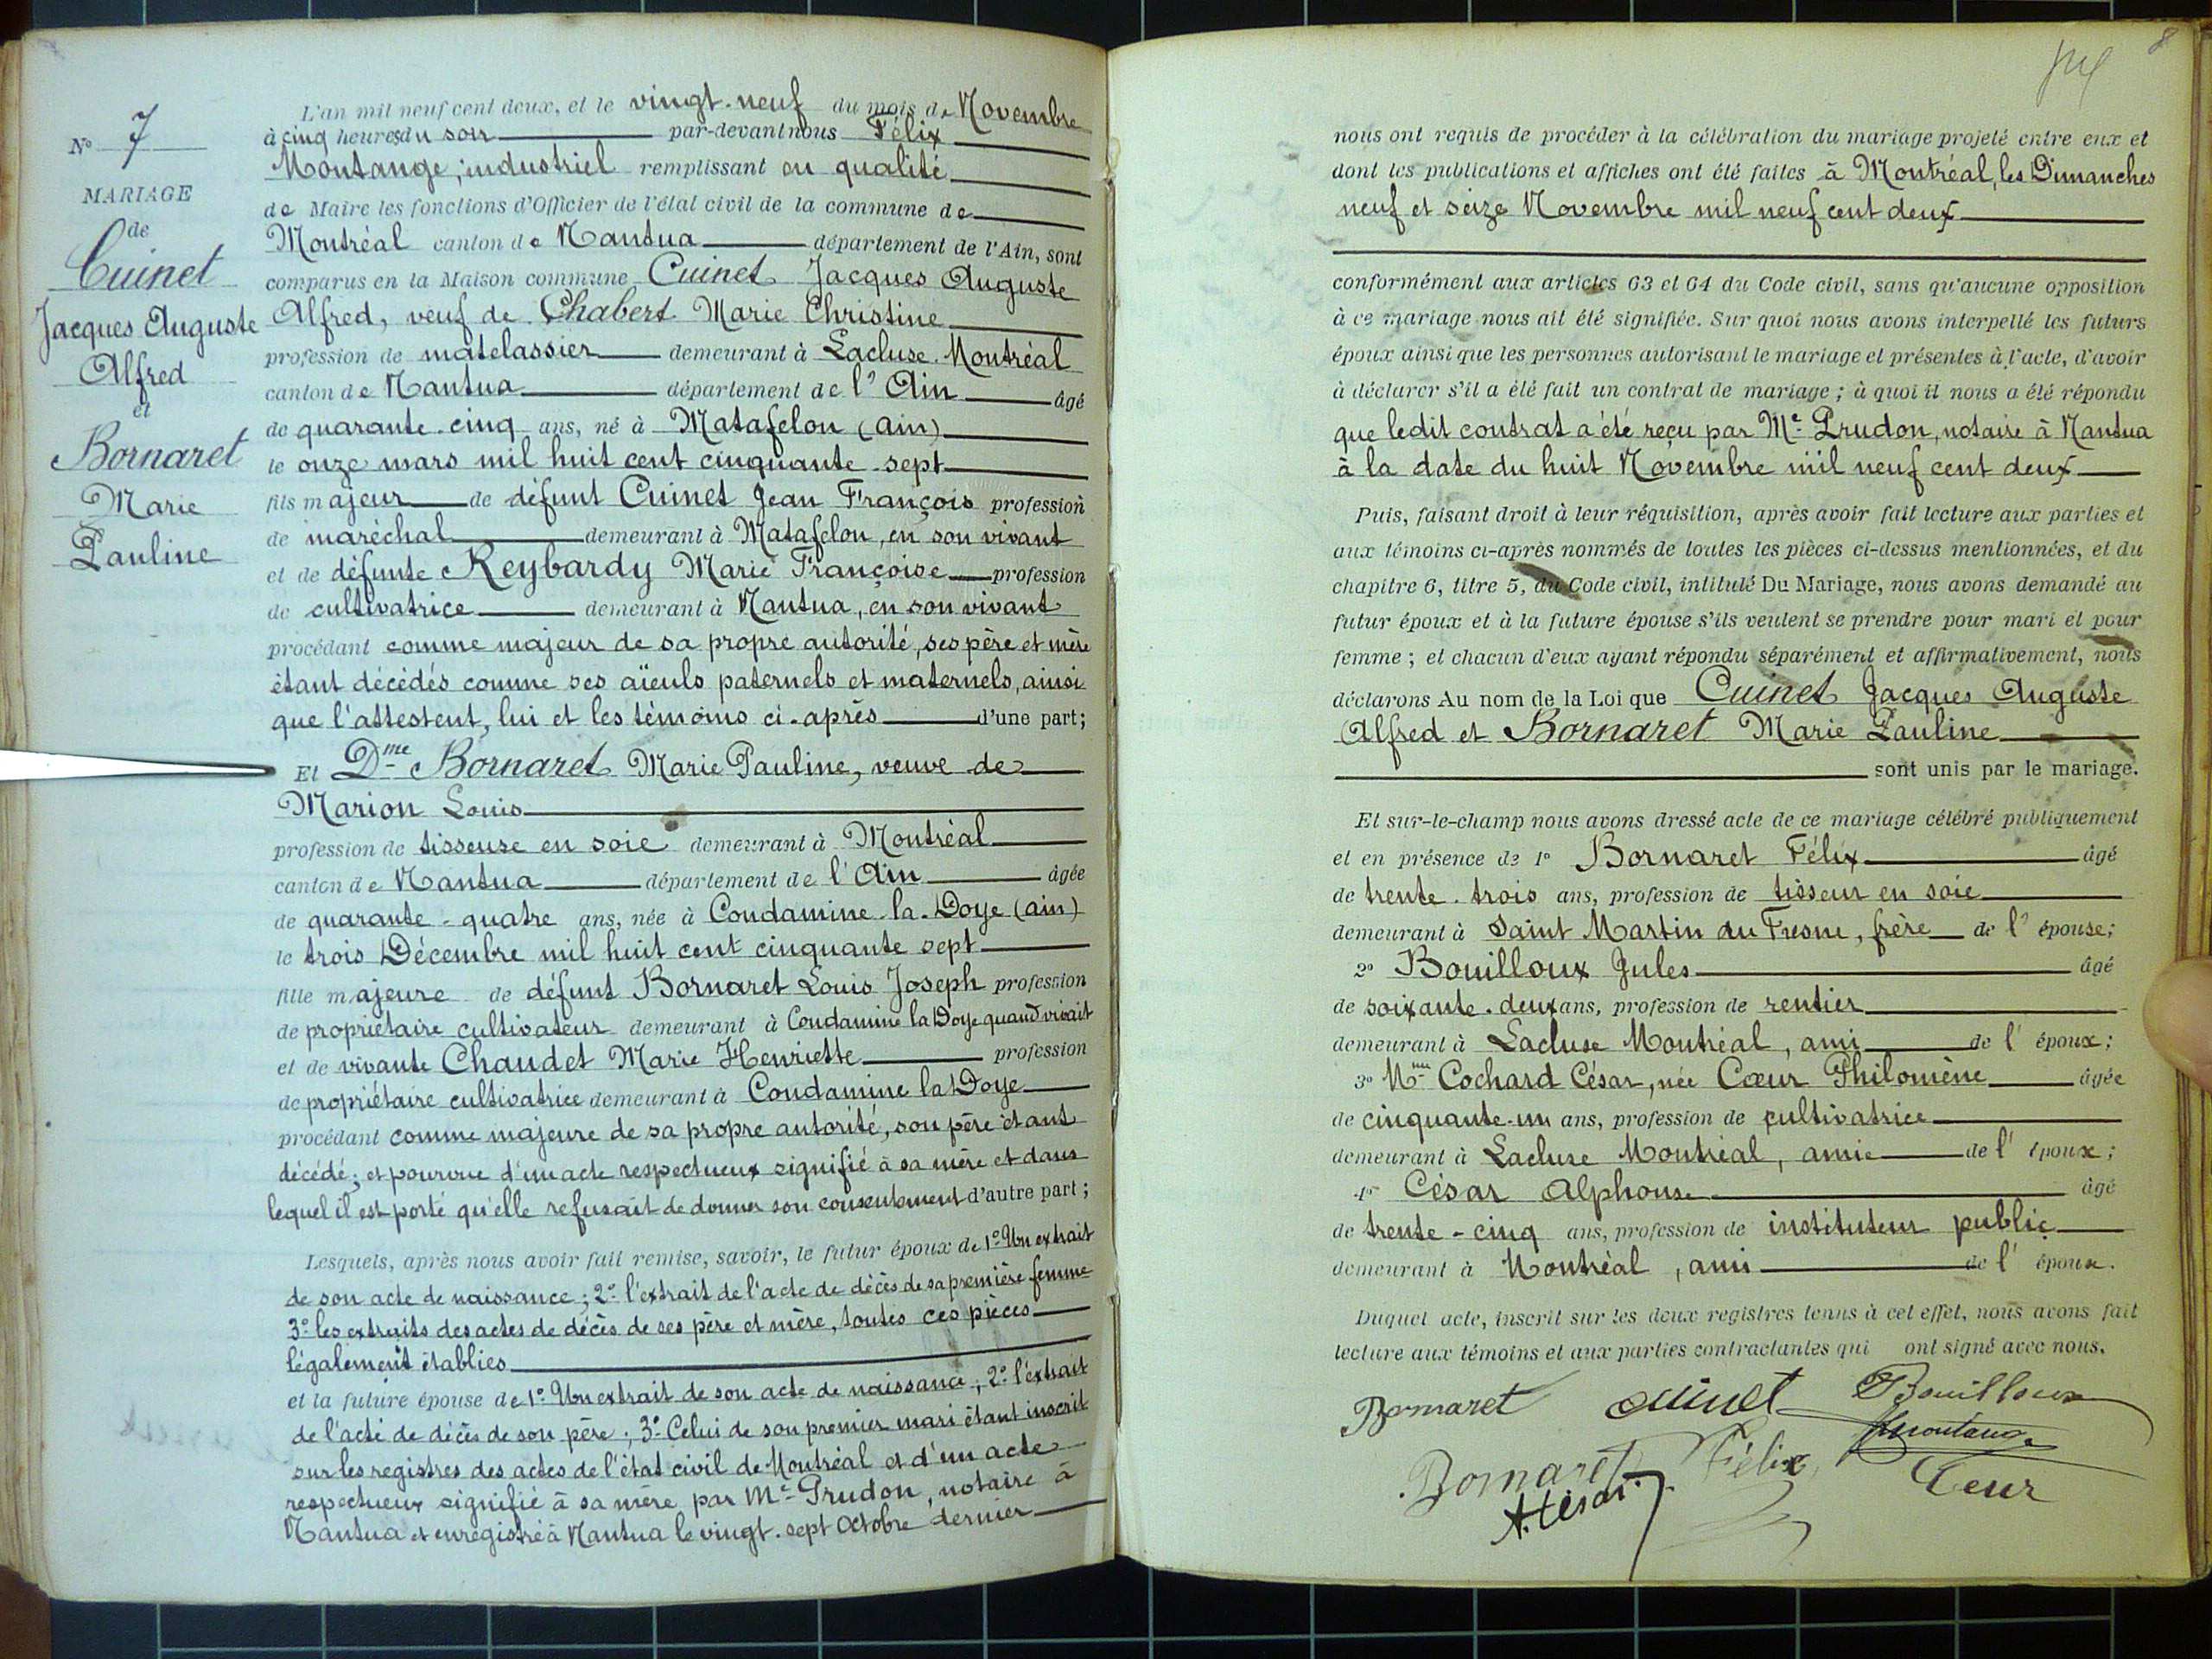 N° 7
MARIAGE
de
Cuinet
Jacques Auguste
Alfred
et
Bornaret
Marie
Pauline
L'an mil neuf cent deux, et le vingt-neuf du mois de Novembre
à cinq heures du soir par-devant nous Félix
Montange, industriel remplissant en qualité
de Maire les fonctions d'Officier de l'état civil de la commune de
Montréal canton de Nantua département de l'Ain, sont
comparus en la Maison commune Cuinet Jacques Auguste
Alfred, veuf de Chabert Marie Christine
profession de matelassier demeurant à Lacluse-Montréal
canton de Nantua département de l'Ain âgé
de quarante-cinq ans, né à Matafelon (ain)
le onze mars mil huit cent cinquante-sept
fils majeur de défunt Cuinet Jean François profession
de maréchal demeurant à Matafelon, en son vivant
et de défunte Reybardy Marie Françoise profession
de cultivatrice demeurant à Nantua, en son vivant
procédant comme majeur de sa propre autorité, ses père et mère
étant décédés comme ses aïeuls paternels et maternels, ainsi
que l'attestent, lui et les témoins ci-après d'une part;
Et Dme Bornaret Marie Pauline, veuve de
Marion Louis
profession de tisseuse en soie demeurant à Montréal
canton de Nantua département de l'Ain âgée
de quarante-quatre ans, née à Condamine-la-Doye (ain)
le trois Décembre mil huit cent cinquante sept
fille majeure de défunt Bornaret Louis Joseph profession
de propriétaire cultivateur demeurant à Condamine la Doye quand vivait
et de vivante Chaudet Marie Henriette profession
de propriétaire cultivatrice demeurant à Condamine la Doye
procédant comme majeure de sa propre autorité, son père étant
décédé; et pourvue d'un acte respectueux signifié à sa mère et dans
lequel il est porté qu'elle refusait de donner son consentement d'autre part;
Lesquels, après nous avoir fait remise, savoir, le futur époux de 1° Un extrait
de son acte de naissance; 2° l'extrait de l'acte de décès de sa première femme
3° les extraits des actes de décès de ses père et mère, toutes ces pièces
légalement établies
et la future épouse de 1° Un extrait de son acte de naissance; 2° l'extrait
de l'acte de décès de son père; 3° Celui de son premier mari étant inscrit
sur les registres des actes de l'état civil de Montréal et d'un acte
respectueux signifié à sa mère par Me Prudon, notaire à
Nantua et enregistré à Nantua le vingt-sept Octobre dernier
8
nous ont requis de procéder à la célébration du mariage projeté entre eux et
dont les publications et affiches ont été faites à Montréal, les Dimanches
neuf et seize Novembre mil neuf cent deux
conformément aux articles 63 et 64 du Code civil, sans qu'aucune opposition
à ce mariage nous ait été signifiée. Sur quoi nous avons interpellé les futurs
époux ainsi que les personnes autorisant le mariage et présentes à l'acte, d'avoir
à déclarer s'il a été fait un contrat de mariage; à quoi il nous a été répondu
que ledit contrat a été reçu par Me Prudon, notaire à Nantua
à la date du huit Novembre mil neuf cent deux
Puis, faisant droit à leur réquisition, après avoir fait lecture aux parties et
aux témoins ci-après nommés de toutes les pièces ci-dessus mentionnées, et du
chapitre 6, titre 5, du Code civil, intitulé Du Mariage, nous avons demandé au
futur époux et à la future épouse s'ils veulent se prendre pour mari et pour
femme; et chacun d'eux ayant répondu séparément et affirmativement, nous
déclarons Au nom de la Loi que Cuinet Jacques Auguste
Alfred et Bornaret Marie Pauline
sont unis par le mariage.
Et sur-le-champ nous avons dressé acte de ce mariage célébré publiquement
et en présence de 1° Bornaret Félix âgé
de trente-trois ans, profession de tisseur en soie
demeurant à Saint Martin du Fresne, frère de l'épouse;
2° Bouilloux Jules âgé
de soixante-deux ans, profession de rentier
demeurant à Lacluse Montréal, ami de l'époux;
3° Mme Cochard César, née Cœur Philomène âgée
de cinquante-un ans, profession de cultivatrice
demeurant à Lacluse Montréal, amie de l'époux;
4° César Alphonse âgé
de trente-cinq ans, profession de instituteur public
demeurant à Montréal, ami de l'époux.
Duquel acte, inscrit sur les deux registres tenus à cet effet, nous avons fait
lecture aux témoins et aux parties contractantes qui ont signé avec nous.
Bornaret Cuinet Bouilloux
Montange
Bornaret Félix Cœur
A. César